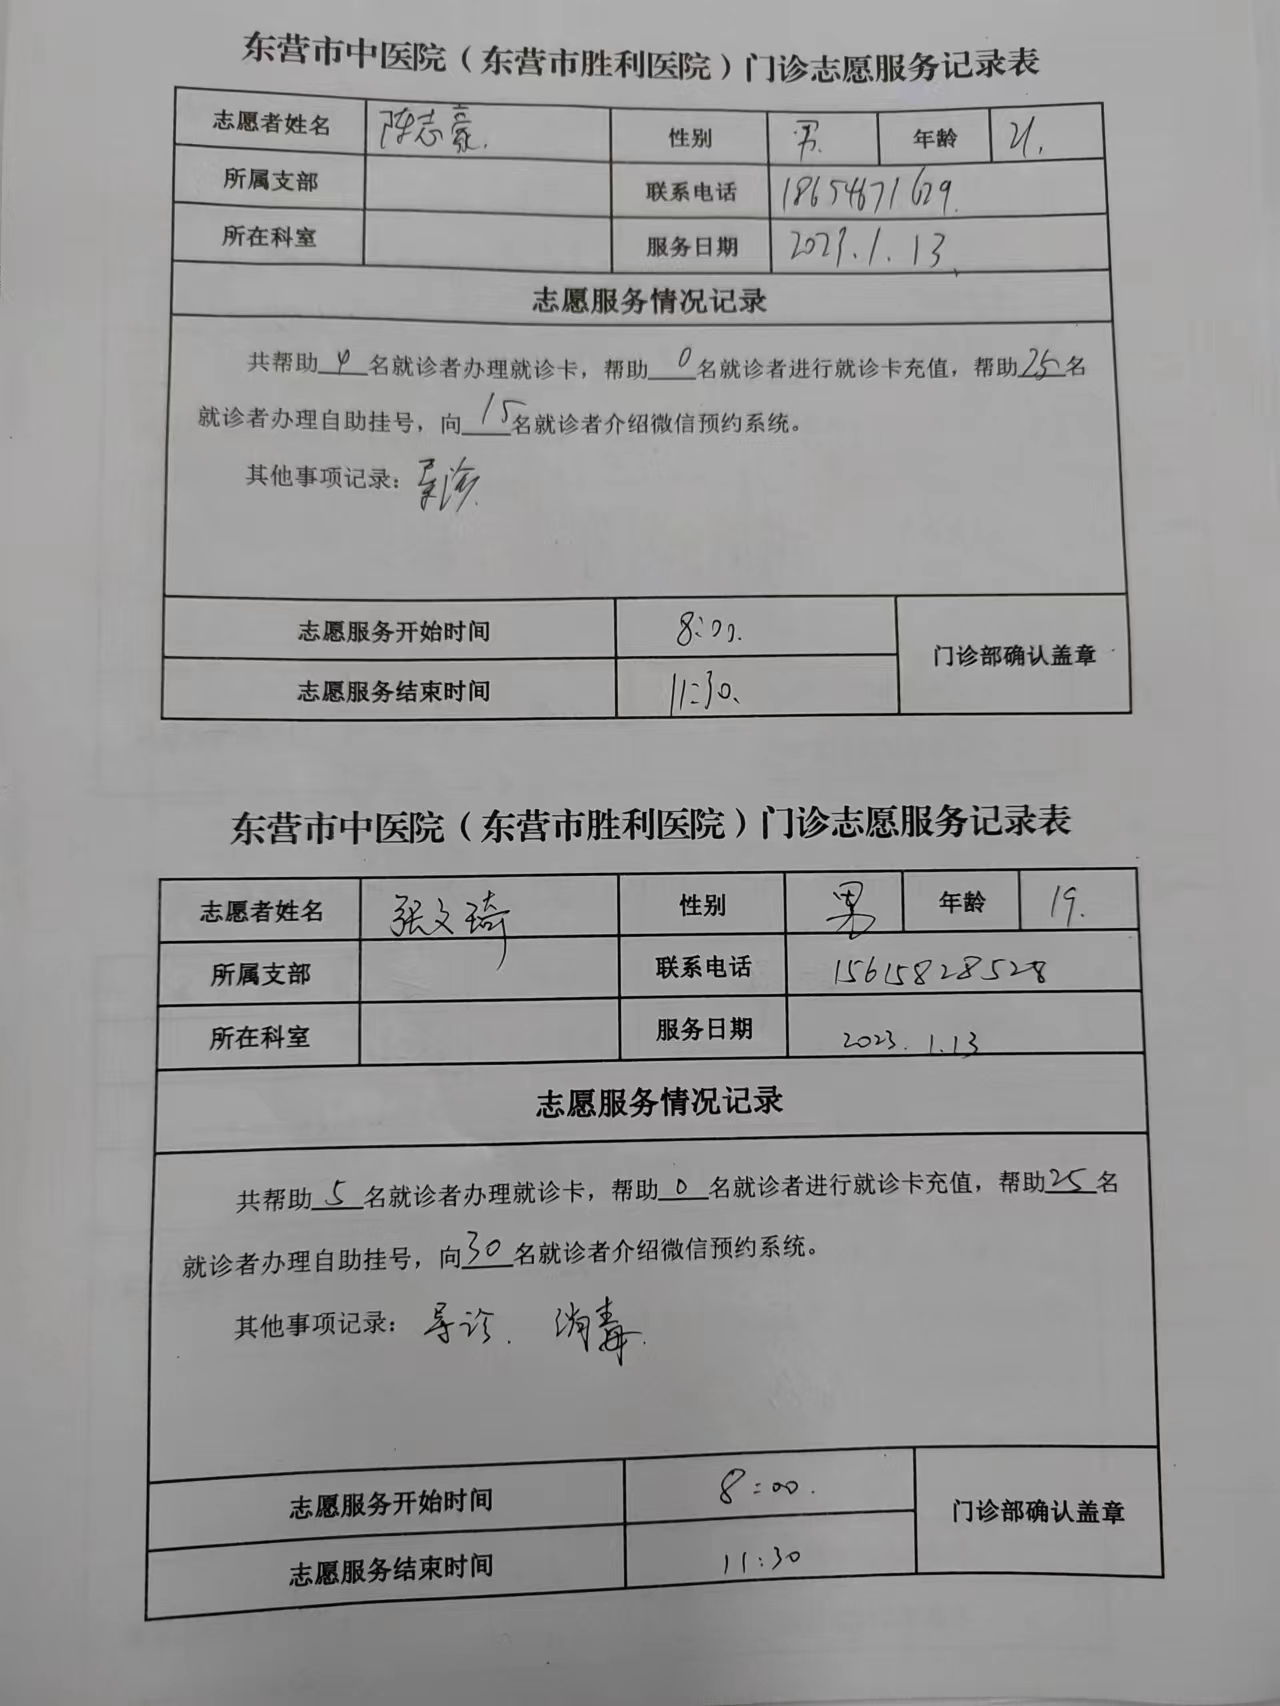 东营市中医院（东营市胜利医院）门诊志愿服务记录表
志愿者姓名 陈志豪. 性别 男. 年龄 21.
所属支部 联系电话 18654671629.
所在科室 服务日期 2023.1.13
志愿服务情况记录
共帮助4名就诊者办理就诊卡，帮助0名就诊者进行就诊卡充值，帮助25名
就诊者办理自助挂号，向15名就诊者介绍微信预约系统。
其他事项记录：导诊.
志愿服务开始时间 8:00. 门诊部确认盖章
志愿服务结束时间 11:30.
东营市中医院（东营市胜利医院）门诊志愿服务记录表
志愿者姓名 张文琦 性别 男 年龄 19.
所属支部 联系电话 15615828528
所在科室 服务日期 2023.1.13
志愿服务情况记录
共帮助5名就诊者办理就诊卡，帮助0名就诊者进行就诊卡充值，帮助25名
就诊者办理自助挂号，向30名就诊者介绍微信预约系统。
其他事项记录：导诊. 消毒.
志愿服务开始时间 8:00. 门诊部确认盖章
志愿服务结束时间 11:30